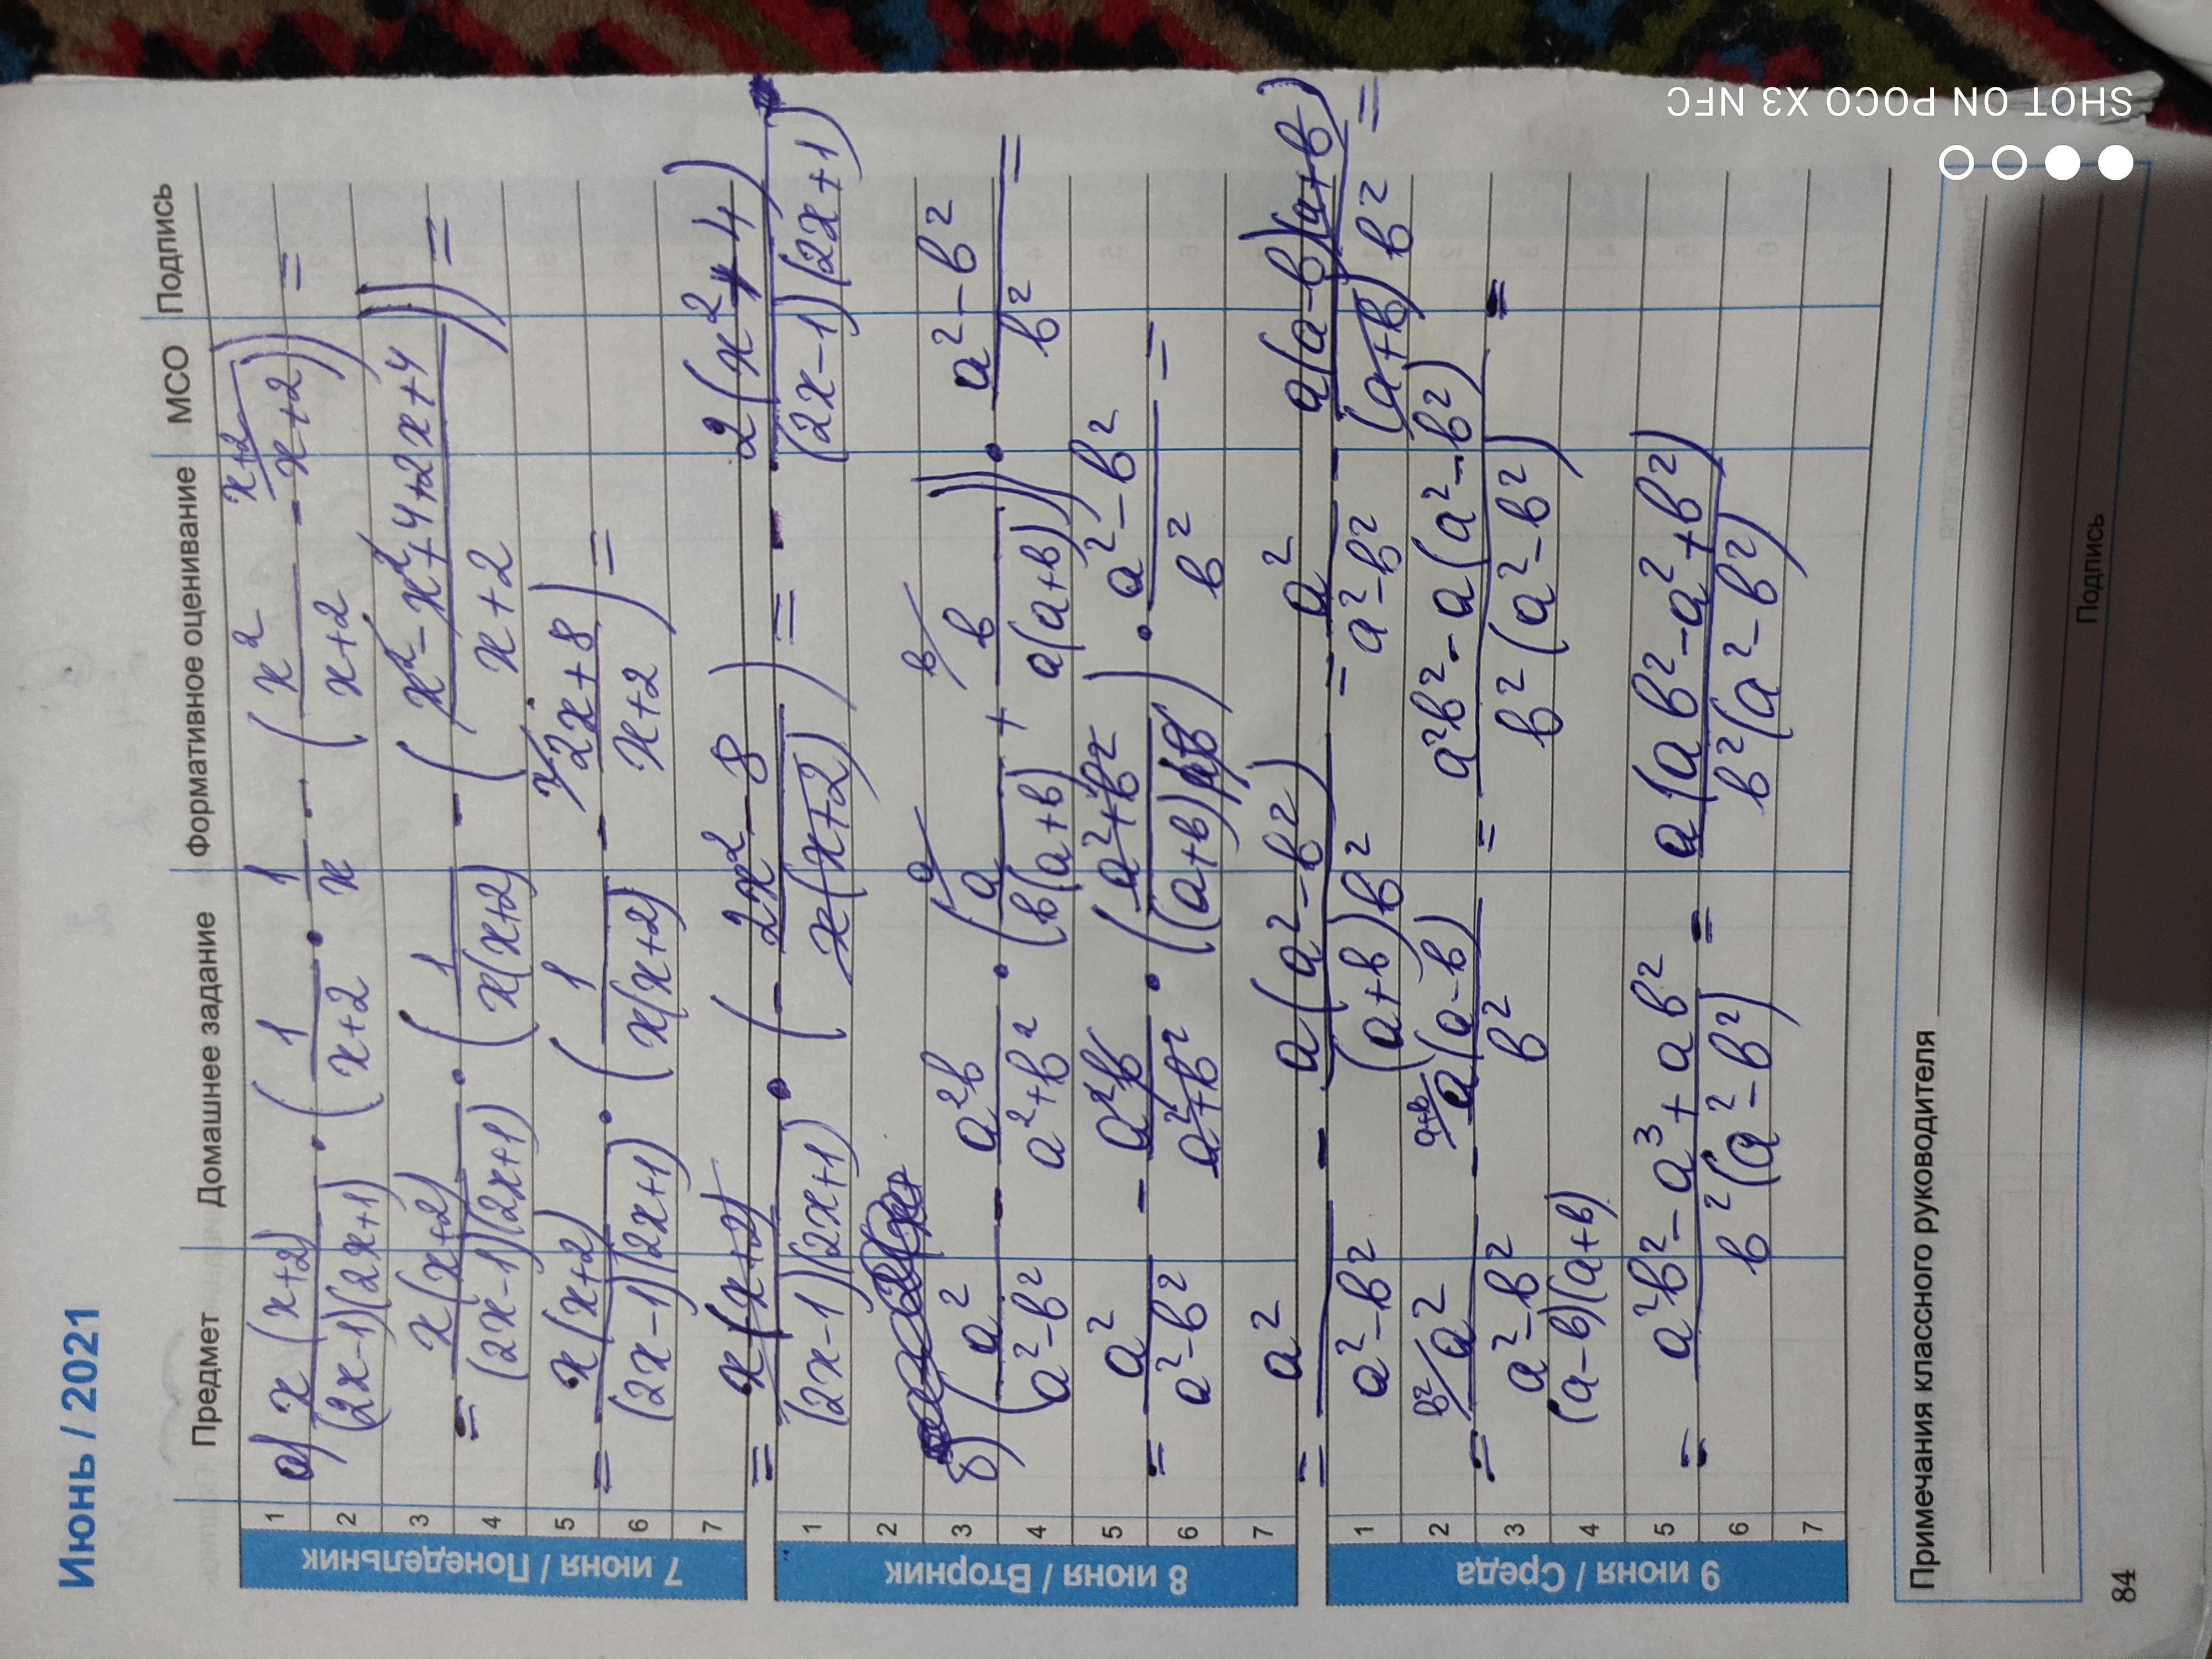 Июнь / 2021
Предмет Домашнее задание Формативное оценивание МСО Подпись
7 июня / Понедельник
1
2
3
4
5
6
7
а) x(x+2)/(2x-1)(2x+1) · (1/x+2 · 1/x - (x²/x+2 - x+2))) =
= x(x+2)/(2x-1)(2x+1) · (1/x(x+2) - (x²-x²+4+2x+4/x+2)) =
= x(x+2)/(2x-1)(2x+1) · (1/x(x+2) - 2x+8/x+2) =
= x(x+2)/(2x-1)(2x+1) · (- 2x²-8/x(x+2)) = - 2(x²+4)/(2x-1)(2x+1)
8 июня / Вторник
1
2
3
4
5
6
7
б) (a²/a²-в² - a²в/a²+в² · (a/в(a+в) + в/a(a+в))) · a²-в²/в² =
= a²/a²-в² - a²в/a²+в² · (a²+в²/(a+в)aв) · a²-в²/в² =
= a²/a²-в² - a(a²-в²)/(a+в)в² = a²/a²-в² - a(a-в)(a+в)/(a+в)в² =
9 июня / Среда
1
2
3
4
5
6
7
= в²/a²/a²-в² - a+в/a(a-в)/в² = a²в²-a(a²-в²)/в²(a²-в²) =
(a-в)(a+в)
= a²в²-a³+aв²/в²(a²-в²) = a(aв²-a²+в²)/в²(a²-в²)
Примечания классного руководителя
Подпись
84
SHOT ON POCO X3 NFC